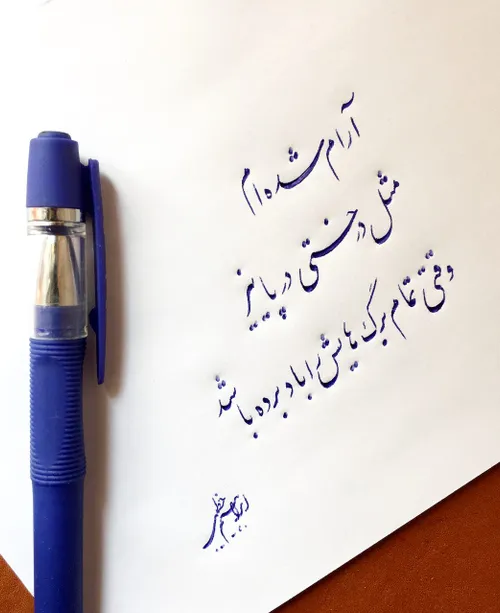 آرام شده‌ام
مثل درختی در پاییز
وقتی تمام برگ‌هایش را باد برده باشد
ابراهیم خطیبی